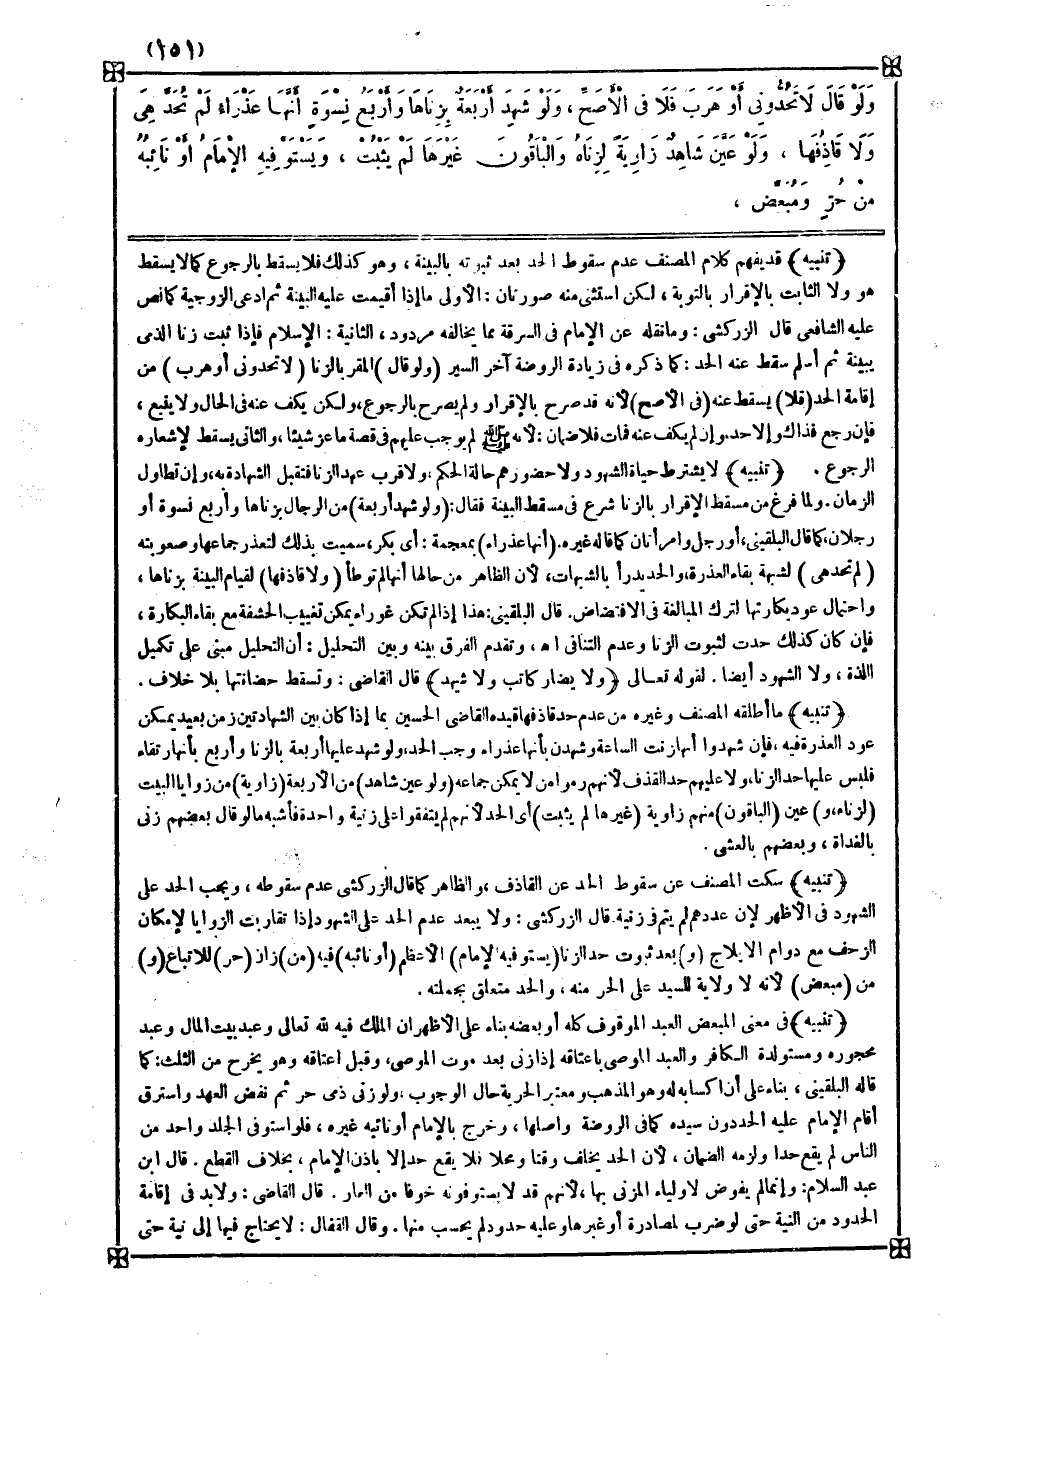 (١٥١)
وَلَوْ قَالَ لَا تَحُدُّونِى أَوْ هَرَبَ فَلَا فِى الْأَصَحِّ ، وَلَوْ شَهِدَ أَرْبَعَةٌ بِزِنَاهَا وَأَرْبَعُ نِسْوَةٍ أَنَّهَا عَذْرَاءُ لَمْ تُحَدَّ هِىَ
وَلَا قَاذِفُهَا ، وَلَوْ عَيَّنَ شَاهِدٌ زَاوِيَةً لِزِنَاهُ وَالْبَاقُونَ غَيْرَهَا لَمْ يَثْبُتْ ، وَيَسْتَوْفِيهِ الْإِمَامُ أَوْ نَائِبُهُ
مِنْ حُرٍّ وَمُبَعَّضٍ ،
﴿ تنبيه ﴾ قد يفهم كلام المصنف عدم سقوط الحد بعد ثبوته بالبينة ، وهو كذلك فلا يسقط بالرجوع كما لا يسقط
هو ولا الثابت بالإقرار بالتوبة ، لكن استثنى منه صورتان : الأولى ما إذا أقيمت عليه البينة ثم ادعى الزوجية كما نص
عليه الشافعى قال الزركشى : وما نقله عن الإمام فى السرقة مما يخالفه مردود ، الثانية : الإسلام فإذا ثبت زنا الذمى
ببينة ثم أسلم سقط عنه الحد : كما ذكره فى زيادة الروضة آخر السير ( ولو قال ) المقر بالزنا ( لا تحدونى أو هرب ) من
إقامة الحد ( فلا ) يسقط عنه ( فى الأصح ) لأنه قد صرح بالإقرار ولم يصرح بالرجوع ، ولكن يكف عنه فى الحال ولا يتبع ،
فإن رجع فذاك وإلا حد ، وإن لم يكف عنه فمات فلا ضمان : لأنه ﷺ لم يوجب عليهم فى قصة ماعز شيئا ، والثانى يسقط لإشعاره
الرجوع . ﴿ تنبيه ﴾ لا يشترط حياة الشهود ولا حضورهم حالة الحكم ، ولا قرب عهد الزنا فتقبل الشهادة به ، وإن تطاول
الزمان . ولما فرغ من مسقط الإقرار بالزنا شرع فى مسقط البينة فقال : ( ولو شهد أربعة ) من الرجال بزناها وأربع نسوة أو
رجلان ، كما قال البلقينى ، أو رجل وامرأتان كما قاله غيره . ( أنها عذراء ) بمعجمة : أى بكر ، سميت بذلك لتعذر جماعها وصعوبته
( لم تحد هى ) لشبهة بقاء العذرة ، والحد يدرأ بالشبهات ، لأن الظاهر من حالها أنها لم توطأ ( ولا قاذفها ) لقيام البينة بزناها ،
واحتمال عود بكارتها لترك المبالغة فى الافتضاض . قال البلقينى : هذا إذا لم تكن غوراء يمكن تغييب الحشفة مع بقاء البكارة ،
فإن كان كذلك حدت لثبوت الزنا وعدم التنافى اه ، وتقدم الفرق بينه وبين التحليل : أن التحليل مبنى على تكميل
اللذة ، ولا الشهود أيضا . لقوله تعالى ﴿ ولا يضار كاتب ولا شهيد ﴾ قال القاضى : وتسقط حضانتها بلا خلاف .
﴿ تنبيه ﴾ ما أطلقه المصنف وغيره من عدم حد قاذفها قيده القاضى الحسين بما إذا كان بين الشهادتين زمن بعيد يمكن
عود العذرة فيه ، فإن شهدوا أنها زنت الساعة وشهدن بأنها عذراء وجب الحد ، ولو شهد عليها أربعة بالزنا وأربع بأنها رتقاء
فليس عليها حد الزنا ، ولا عليهم حد القذف لأنهم رموا من لا يمكن جماعه ( ولو عين شاهد ) من الأربعة ( زاوية ) من زوايا البيت
( لزناه ، و ) عين ( الباقون ) منهم زاوية ( غيرها لم يثبت ) أى الحد لأنهم لم يتفقوا على زنية واحدة فأشبه ما لو قال بعضهم زنى
بالغداة ، وبعضهم بالعشى .
﴿ تنبيه ﴾ سكت المصنف عن سقوط الحد عن القاذف ، والظاهر كما قال الزركشى عدم سقوطه ، ويجب الحد على
الشهود فى الأظهر لأن عددهم لم يتم فى زنية . قال الزركشى : ولا يبعد عدم الحد على الشهود إذا تقاربت الزوايا لإمكان
الزحف مع دوام الإيلاج ( و ) بعد ثبوت حد الزنا ( يستوفيه الإمام ) الأعظم ( أو نائبه ) فيه ( من ) زان ( حر ) للاتباع ( و )
من ( مبعض ) لأنه لا ولاية للسيد على الحر منه ، والحد متعلق بجملته .
﴿ تنبيه ﴾ فى معنى المبعض العبد الموقوف كله أو بعضه بناء على الأظهر ان الملك فيه لله تعالى وعبد بيت المال وعبد
محجوره ومستولدة الكافر والعبد الموصى باعتاقه إذا زنى بعد موت الموصى ، وقبل اعتاقه وهو يخرج من الثلث : كما
قاله البلقينى ، بناء على أن اكسابه له وهو المذهب ومعتبر الحرية حال الوجوب ، ولو زنى ذمى حر ثم نقض العهد واسترق
أقام الإمام عليه الحد دون سيده كما فى الروضة واصلها ، وخرج بالإمام أو نائبه غيره ، فلو استوفى الجلد واحد من
الناس لم يقع حدا ولزمه الضمان ، لأن الحد يختلف وقتا ومحلا فلا يقع حدا إلا باذن الإمام ، بخلاف القطع . قال ابن
عبد السلام : وإنما لم يفوض لأولياء المزنى بها ، لأنهم قد لا يستوفونه خوفا من العار . قال القاضى : ولابد فى إقامة
الحدود من النية حتى لو ضرب لمصادرة أو غيرها وعليه حدود لم يحسب منها . وقال القفال : لا يحتاج فيها إلى نية حتى